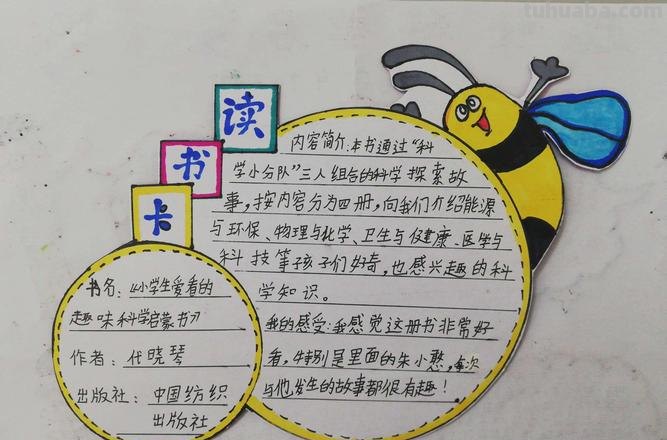 tuhuaba.com
读
书
卡
内容简介:本书通过“科
学小分队”三人组合的科学探索故
事,按内容分为四册,向我们介绍能源
与环保、物理与化学、卫生与健康、医学与
科技等孩子们好奇,也感兴趣的科
学知识。
我的感受:我感觉这册书非常好
看,特别是里面的朱小憨,每次
与他发生的故事都很有趣!
书名:《小学生爱看的
趣味科学启蒙书》
作者:代晓琴
出版社:中国纺织
出版社